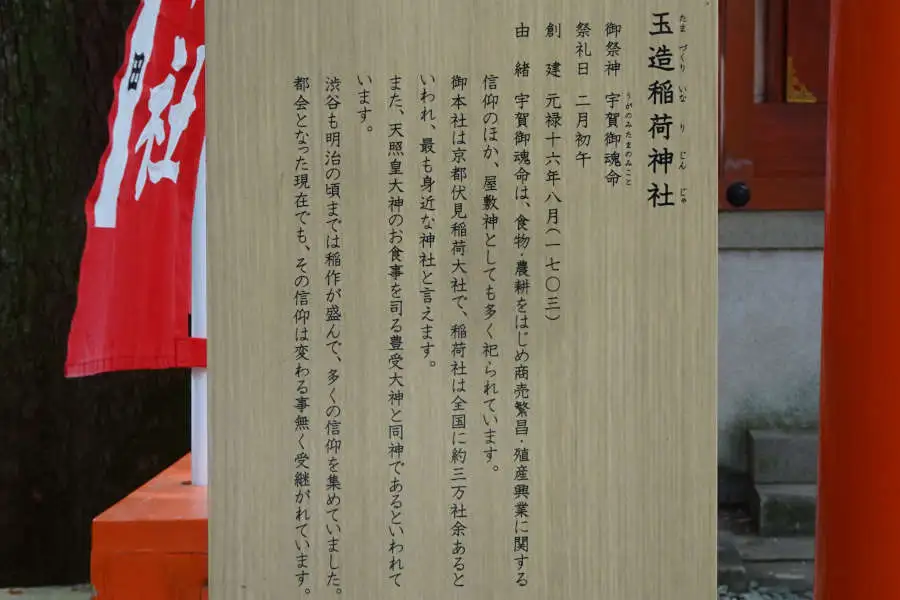 玉造稲荷神社
たまづくりいなりじんじゃ
御祭神 宇賀御魂命
うがのみたまのみこと
祭礼日 二月初午
創建 元禄十六年八月(一七〇三)
由緒 宇賀御魂命は、食物・農耕をはじめ商売繁昌・殖産興業に関する
信仰のほか、屋敷神としても多く祀られています。
御本社は京都伏見稲荷大社で、稲荷社は全国に約三万社余あると
いわれ、最も身近な神社と言えます。
また、天照皇大神のお食事を司る豊受大神と同神であるといわれて
います。
渋谷も明治の頃までは稲作が盛んで、多くの信仰を集めていました。
都会となった現在でも、その信仰は変わる事無く受継がれています。
社